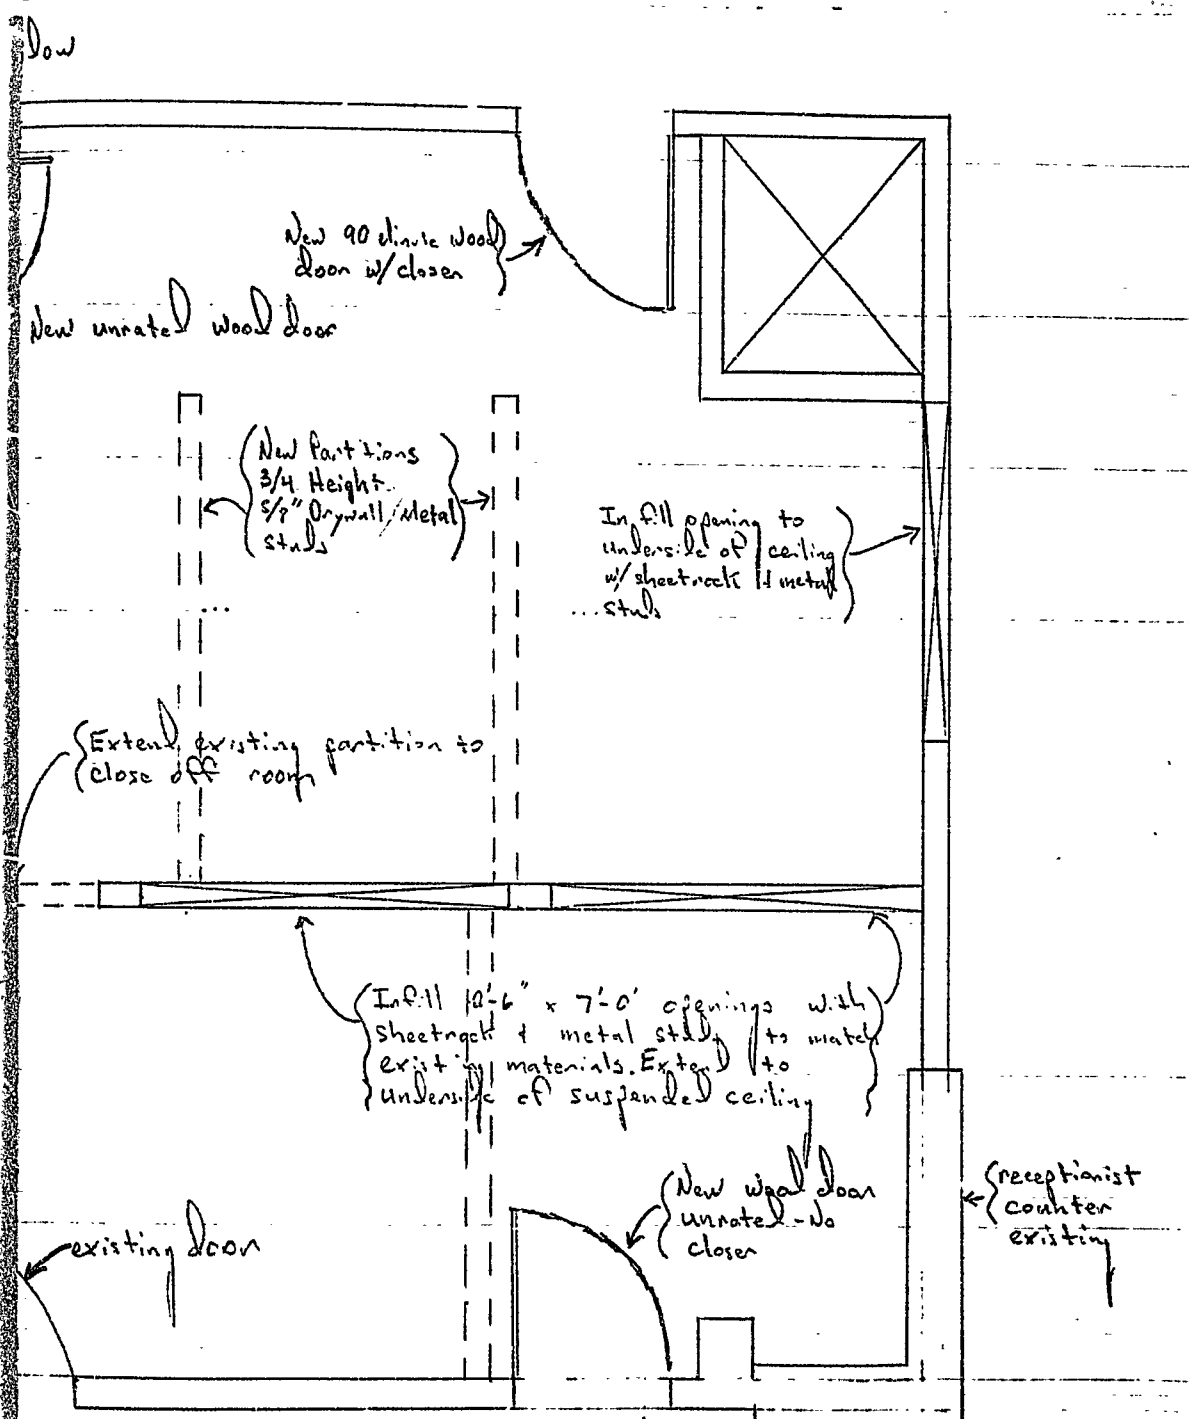 New 90 minute wood
door w/closer
New unrated wood door
New Partitions
3/4 Height
5/8" Drywall/Metal
studs
Infill opening to
underside of ceiling
w/ sheetrock & metal
studs
Extend existing partition to
close off room
Infill x 7'-0" openings with
sheetrock & metal studs to match
existing materials. Extend to
underside of suspended ceiling
New wood door
unrated - No
closer
receptionist
counter
existing
existing door